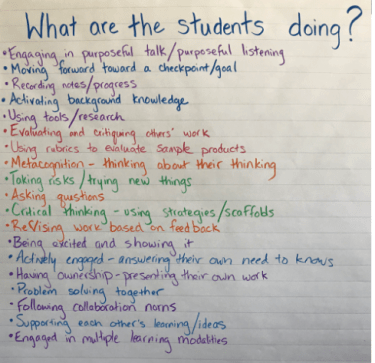 What are the students doing?
• Engaging in purposeful talk/purposeful listening
• Moving forward toward a checkpoint/goal
• Recording notes/progress
• Activating background knowledge
• Using tools/research
• Evaluating and critiquing others' work
• Using rubrics to evaluate sample products
• Metacognition - thinking about their thinking
• Taking risks/trying new things
• Asking questions
• Critical thinking - using strategies/scaffolds
• Revising work based on feedback
• Being excited and showing it
• Actively engaged - answering their own need to knows
• Having ownership - presenting their own work
• Problem solving together
• Following collaboration norms
• Supporting each other's learning/ideas
• Engaged in multiple learning modalities